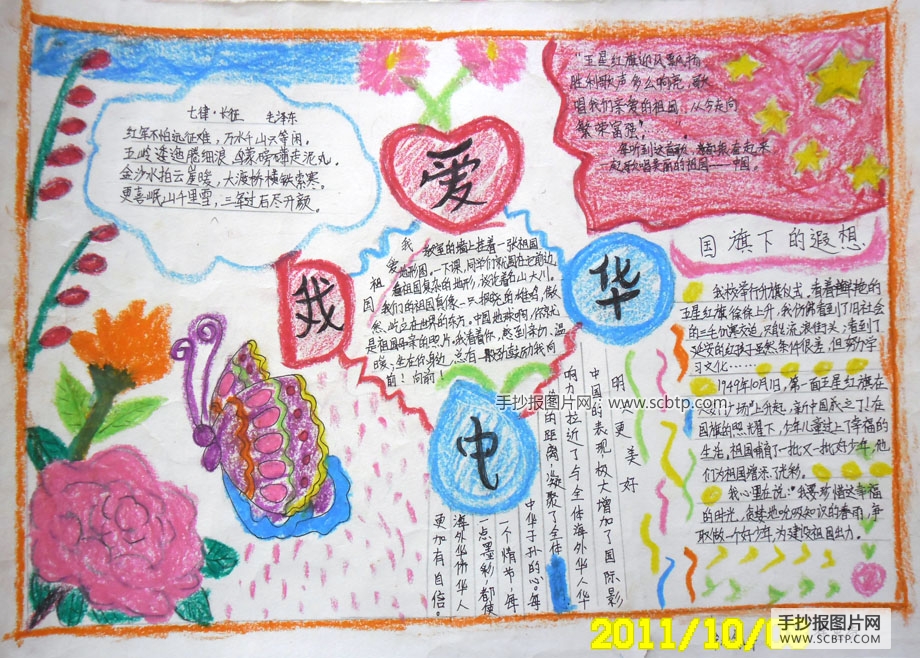 七律·长征 毛泽东
红军不怕远征难，万水千山只等闲。
五岭逶迤腾细浪，乌蒙磅礴走泥丸。
金沙水拍云崖暖，大渡桥横铁索寒。
更喜岷山千里雪，三军过后尽开颜。
爱
我
华
中
"五星红旗迎风飘扬，
胜利歌声多么响亮，歌
唱我们亲爱的祖国，从今走向
繁荣富强。"
每听到这首歌，
歌唱美丽的祖国——中国。
我爱祖国
教室的墙上挂着一张祖国
地形图。一下课，同学们就围在它前边，
看祖国复杂的地形，谈论着名山大川。
我们的祖国真像一只报晓的雄鸡，傲
然屹立在世界的东方。中国地球啊，你就
是祖国母亲的照片，我看着你，感到亲切，温
暖；坐在你身边，总有一股劲鼓励我向
前！向前！
国旗下的遐想
我校举行升旗仪式，看着鲜艳的
五星红旗徐徐上升，我仿佛看到了旧社会
的三毛们寒交迫，只能流浪街头，看到了
延安的红孩子虽然条件很差，但努力学
习文化……
1949年10月1日，第一面五星红旗在
天安门广场"上升起，新中国成立了！在
国旗的照耀下，少年儿童过上了幸福的
生活，祖国哺育了一批又一批好少年，他
们为祖国增添了光彩。
我心里在说："我要珍惜这幸福
的时光，贪婪地吮吸知识的春雨，争
取做一个好少年，为建设祖国出力。
明 更美好
中国的表现极大增加了国际影
响力，拉近了与全体海外华人华
的距离，凝聚了全体
中华子孙的心。每
一个情节，每
一点墨彩，都使
海外华侨华人
更加有自信。
手抄报图片网 www.scbtp.com
2011/10/
手抄报图片网
WWW.SCBTP.COM